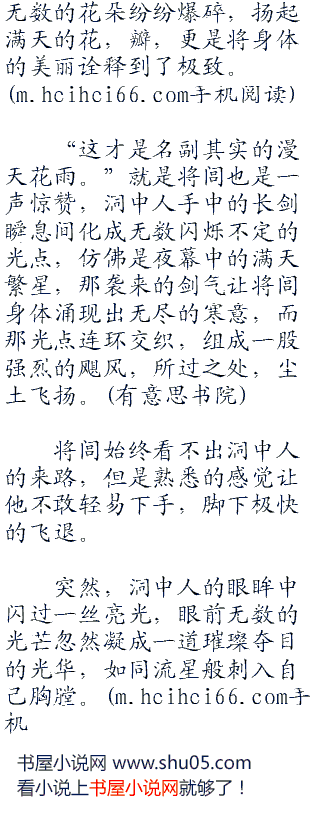 无数的花朵纷纷爆碎，扬起
满天的花，瓣，更是将身体
的美丽诠释到了极致。
(m.hcihci66.com手机阅读)
“这才是名副其实的漫
天花雨。”就是将闾也是一
声惊赞，洞中人手中的长剑
瞬息间化成无数闪烁不定的
光点，仿佛是夜幕中的满天
繁星，那袭来的剑气让将闾
身体涌现出无尽的寒意，而
那光点连环交织，组成一股
强烈的飓风，所过之处，尘
土飞扬。(有意思书院)
将闾始终看不出洞中人
的来路，但是熟悉的感觉让
他不敢轻易下手，脚下极快
的飞退。
突然，洞中人的眼眸中
闪过一丝亮光，眼前无数的
光芒忽然凝成一道璀璨夺目
的光华，如同流星般刺入自
己胸膛。(m.hcihci66.com手
机
书屋小说网 www.shu05.com
看小说上书屋小说网就够了！